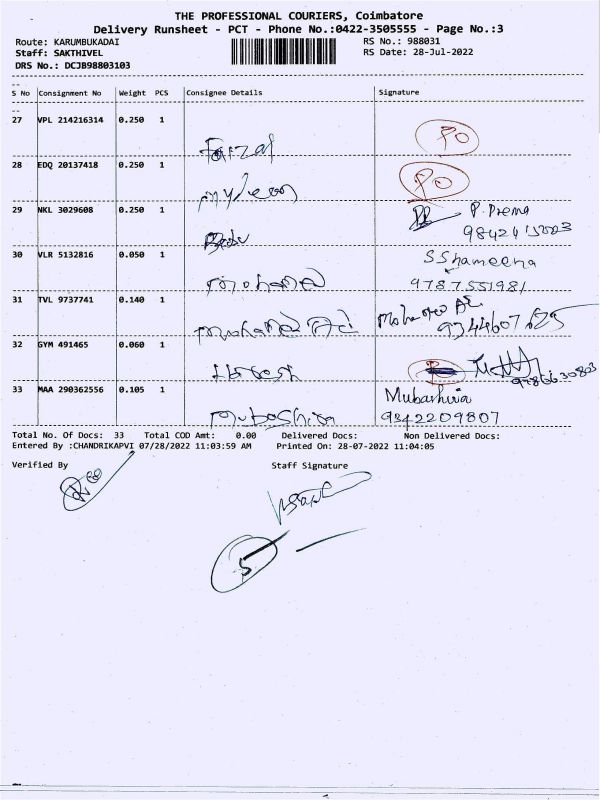 THE PROFESSIONAL COURIERS, Coimbatore
Delivery Runsheet - PCT - Phone No.:0422-3505555 - Page No.:3
Route: KARUMBUKADAI RS No.: 988031
Staff: SAKTHIVEL RS Date: 28-Jul-2022
DRS No.: DCJB98803103
S No Consignment No Weight PCS Consignee Details Signature
27 VPL 214216314 0.250 1
Faizal PO
28 EDQ 20137418 0.250 1
PO
29 NKL 3029608 0.250 1 P. Prema
Babu
30 VLR 5132816 0.050 1 S Shameena
mohamed 9787551981
31 TVL 9737741 0.140 1
mohamed
32 GYM 491465 0.060 1
33 MAA 290362556 0.105 1 Mubashira
mubashira 9342209807
Total No. Of Docs: 33 Total COD Amt: 0.00 Delivered Docs: Non Delivered Docs:
Entered By :CHANDRIKAPVI 07/28/2022 11:03:59 AM Printed On: 28-07-2022 11:04:05
Verified By Staff Signature
5